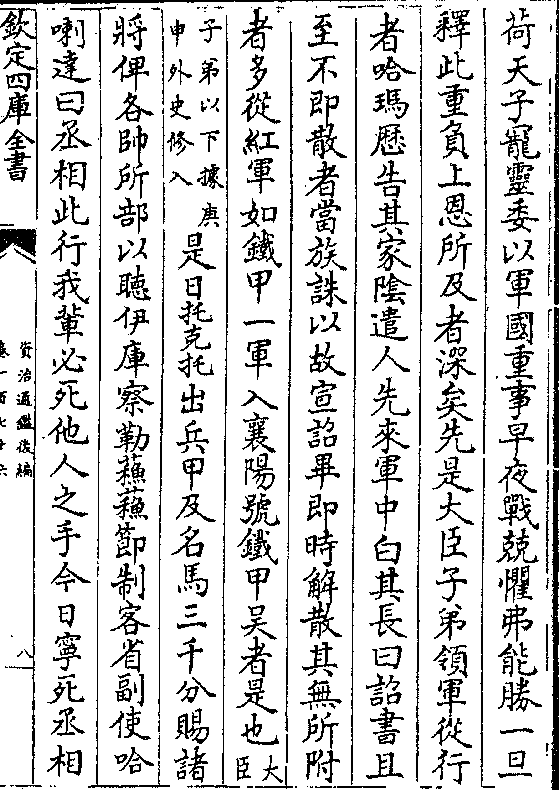 荷天子寵靈委以軍國重事早夜戰兢懼弗能勝一旦
釋此重負上恩所及者深矣先是大臣子弟領軍從行
者哈瑪歴告其家陰遣人先來軍中白其長曰詔書且
至不即散者當族誅以故宣詔畢即時解散其無所附
者多從紅軍如鐵甲一軍入襄陽號鐵甲吳者是也大臣
子弟以下據庚申外史修入是日托克托出兵甲及名馬三千分賜諸
將俾各帥所部以聽伊庫察勒蘓蘓節制客省副使哈
喇達曰丞相此行我輩必死他人之手今日寧死丞相
欽定四庫全書
資治通鑑後編
八